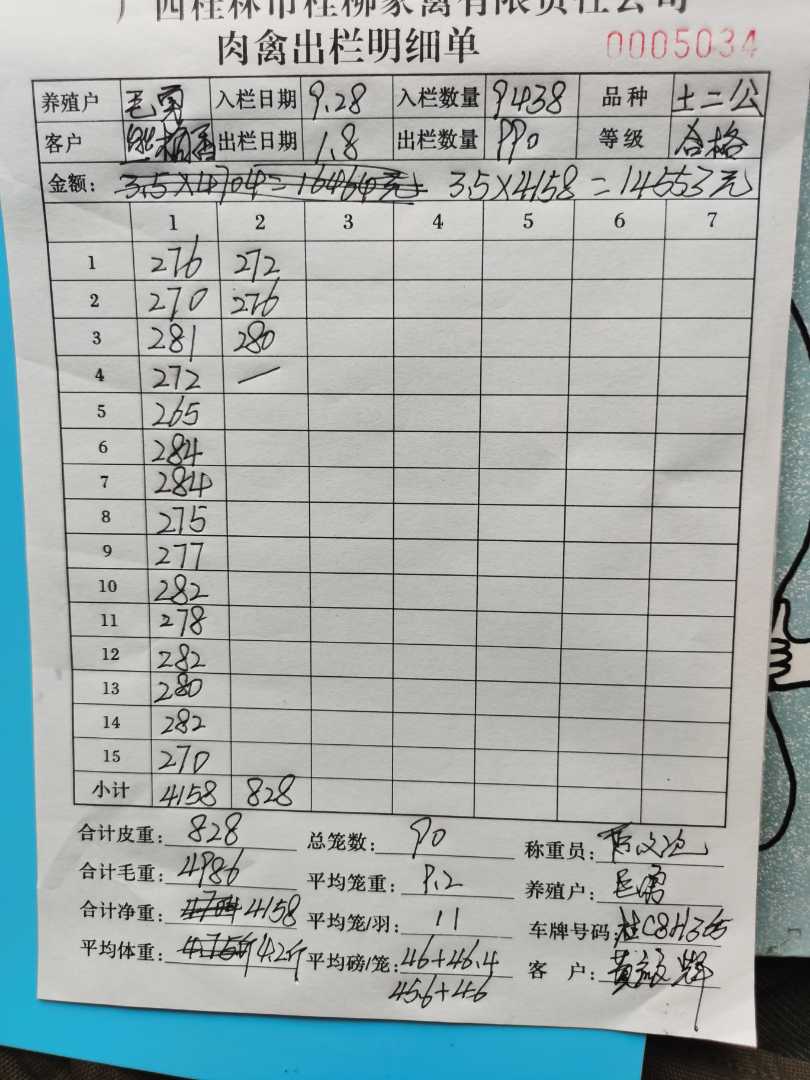 广西桂林市桂柳家禽有限责任公司
肉禽出栏明细单 0005034
养殖户 毛勇 入栏日期 9.28 入栏数量 9438 品种 土二公
客户 出栏日期 1.8 出栏数量 990 等级 合格
金额: 3.5×4704=16464元 3.5×4158=14553元
1 2 3 4 5 6 7
1 276 272
2 270 276
3 281 280
4 272 —
5 265
6 284
7 284
8 275
9 277
10 282
11 278
12 282
13 280
14 282
15 270
小计 4158 828
合计皮重: 828 总笼数: 90 称重员:
合计毛重: 4986 平均笼重: 9.2 养殖户: 毛勇
合计净重: 4704 4158 平均笼/羽: 11 车牌号码: 桂C8H365
平均体重: 4.75斤 4.2斤 平均磅/笼: 46+46.4 客户:
45.6+46